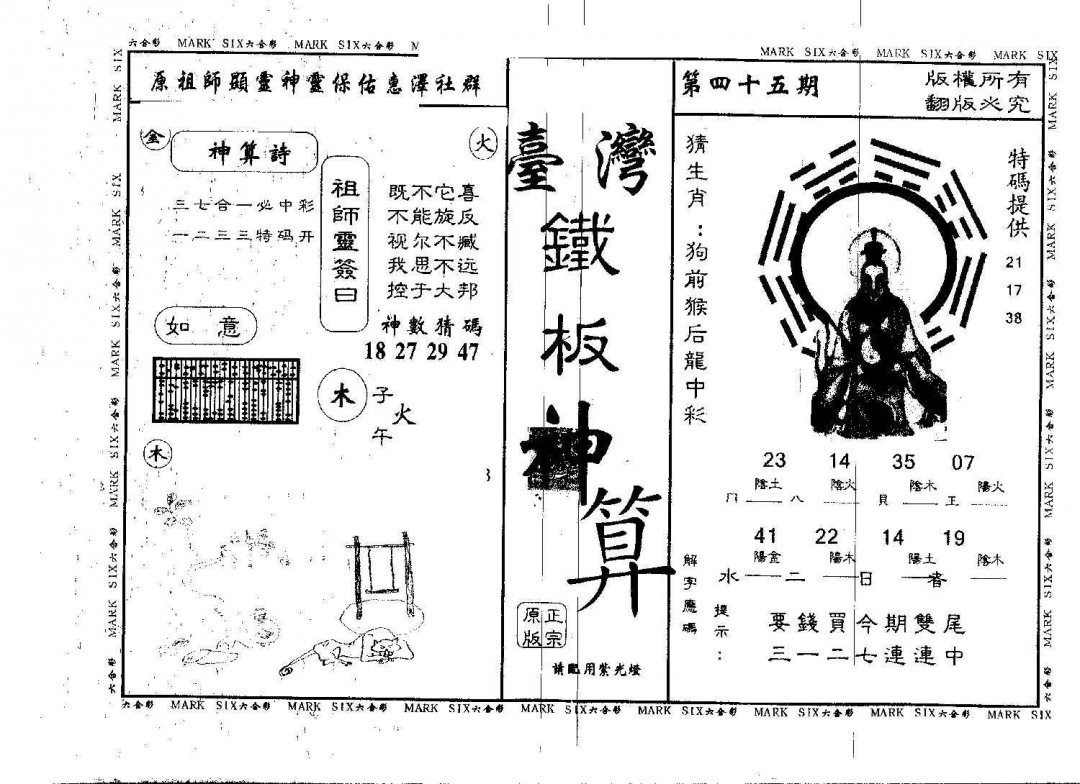 六合彩 MARK SIX六合彩 MARK SIX六合彩 M
MARK SIX六合彩 MARK SIX六合彩 MARK SIX
原祖師顯靈神靈保佑惠澤社群
金
神算詩
火
三七合一必中彩
一二三三特码开
祖師靈簽曰
既不它喜
不能旋反
视尔不臧
我思不远
控于大邦
神數猜碼
18 27 29 47
如意
木
子
火
午
木
臺灣
鐵板神算
正宗
原版
请配用紫光燈
第四十五期
版權所有
翻版必究
猜生肖：狗前猴后龍中彩
特碼提供
21
17
38
23 14 35 07
陰土 陰火 陰木 陽火
八 貝 正
41 22 14 19
陽金 陽木 陽土 陰木
水 二 日 者
解字應碼
提示：
要錢買今期雙尾
三一二七連連中
六合彩 MARK SIX六合彩 MARK SIX六合彩 MARK SIX六合彩 MARK SIX六合彩 MARK SIX六合彩 MARK SIX六合彩 MARK SIX六合彩 MARK SIX